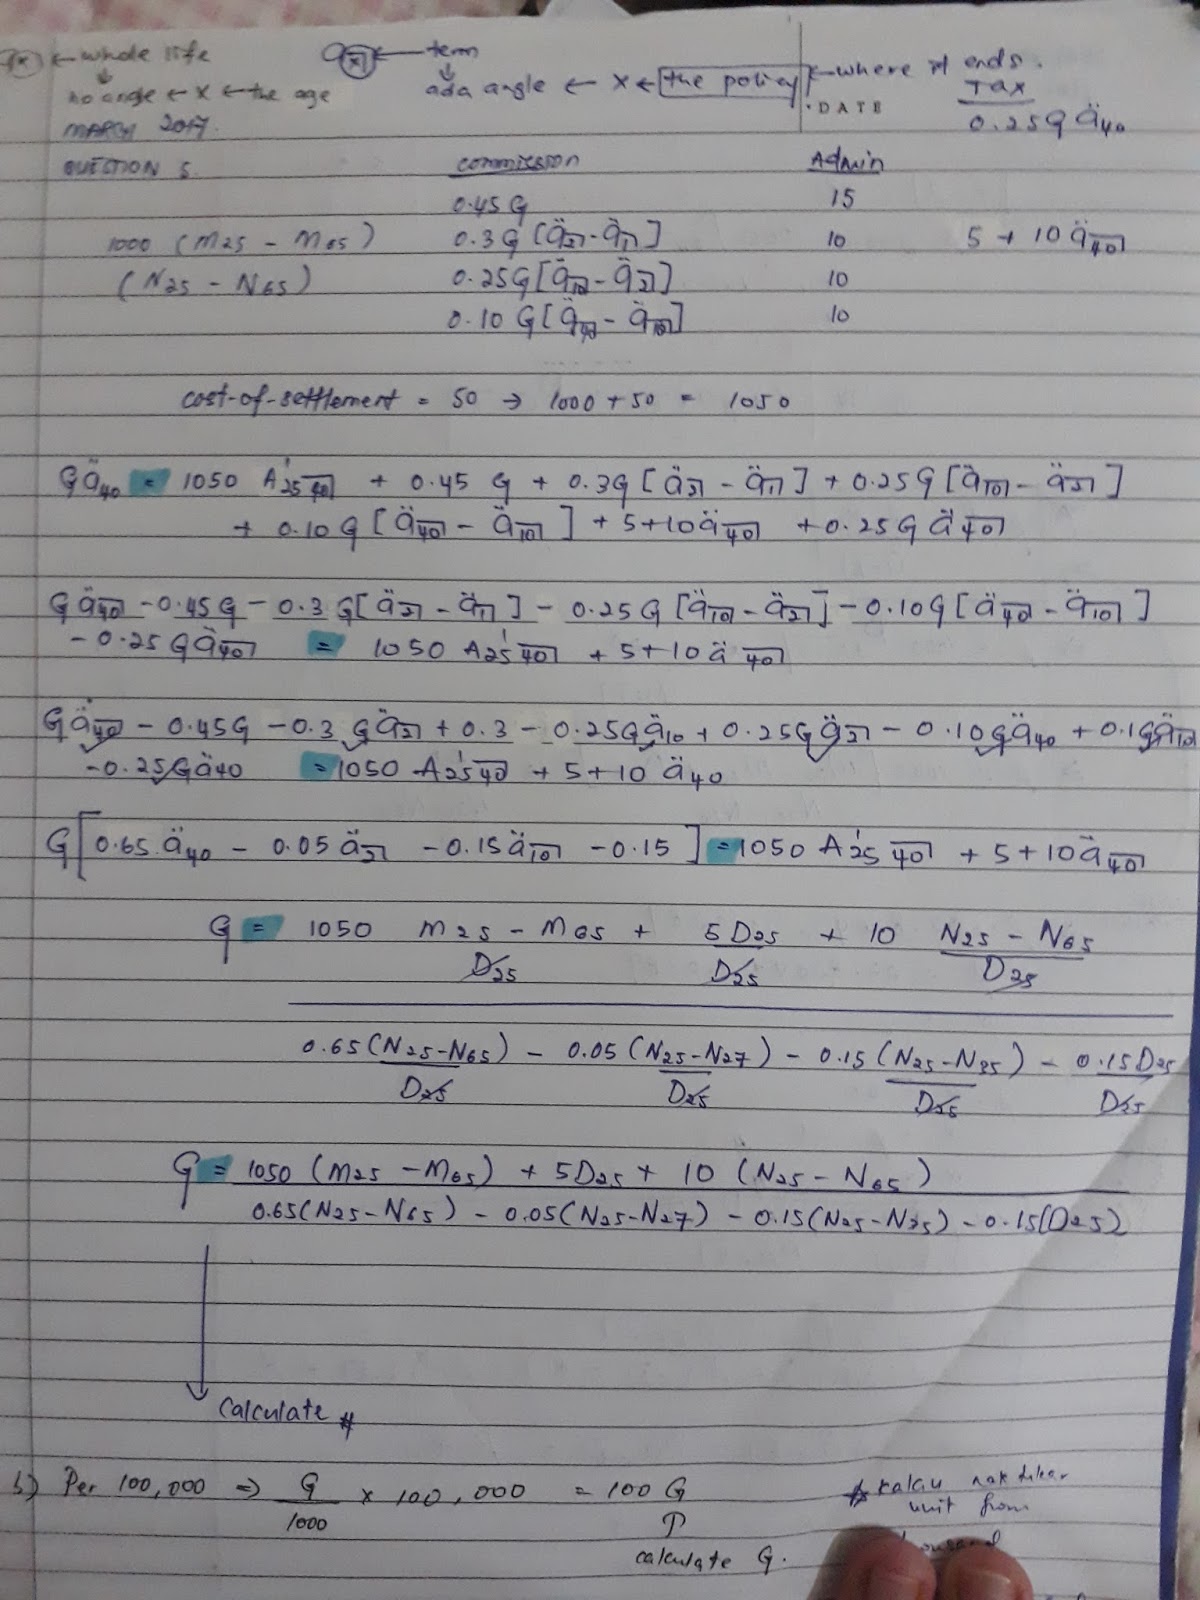 ← whole life
term
no angle ← x ← the age
ada angle ← x ← the policy ← where it ends.
MARCH 2017.
DATE
Tax
0.25G ä40
QUESTION 5.
commission
Admin
0.45 G
15
1000 (M25 - M65)
0.3G [ä2̅| - ä1̅|]
10
5 + 10 ä4̅0̅|
(N25 - N65)
0.25G [ä1̅0̅| - ä2̅|]
10
0.10 G [ä4̅0̅| - ä1̅0̅|]
10
cost-of-settlement = 50 → 1000 + 50 = 1050
Gä40 = 1050 A¹25 4̅0̅| + 0.45 G + 0.3G [ä2̅| - ä1̅|] + 0.25G [ä1̅0̅| - ä2̅|]
+ 0.10 G [ä4̅0̅| - ä1̅0̅|] + 5 + 10ä4̅0̅| + 0.25G ä4̅0̅|
Gä4̅0̅| - 0.45G - 0.3 G[ä2̅| - ä1̅|] - 0.25G [ä1̅0̅| - ä2̅|] - 0.10G [ä4̅0̅| - ä1̅0̅|]
- 0.25 Gä4̅0̅| = 1050 A¹25 4̅0̅| + 5 + 10 ä4̅0̅|
Gä4̅0̅| - 0.45G - 0.3 Gä2̅| + 0.3 - 0.25Gä10 + 0.25Gä2̅| - 0.10Gä40 + 0.1Gä1̅0̅|
- 0.25Gä40 = 1050 A¹25 4̅0̅| + 5 + 10 ä40
G[0.65 ä40 - 0.05 ä2̅| - 0.15ä1̅0̅| - 0.15] = 1050 A¹25 4̅0̅| + 5 + 10ä4̅0̅|
G = 1050 M25 - M65 + 5D25 + 10 N25 - N65
D25 D25 D25
0.65(N25-N65) - 0.05 (N25-N27) - 0.15 (N25-N35) - 0.15D25
D25 D25 D25 D25
G = 1050 (M25 - M65) + 5D25 + 10 (N25 - N65)
0.65(N25-N65) - 0.05(N25-N27) - 0.15(N25-N35) - 0.15(D25)
Calculate #
b) Per 100,000 ⇒ G × 100,000 = 100 G
1000
↑
calculate G.
* kalau nak tukar
unit from